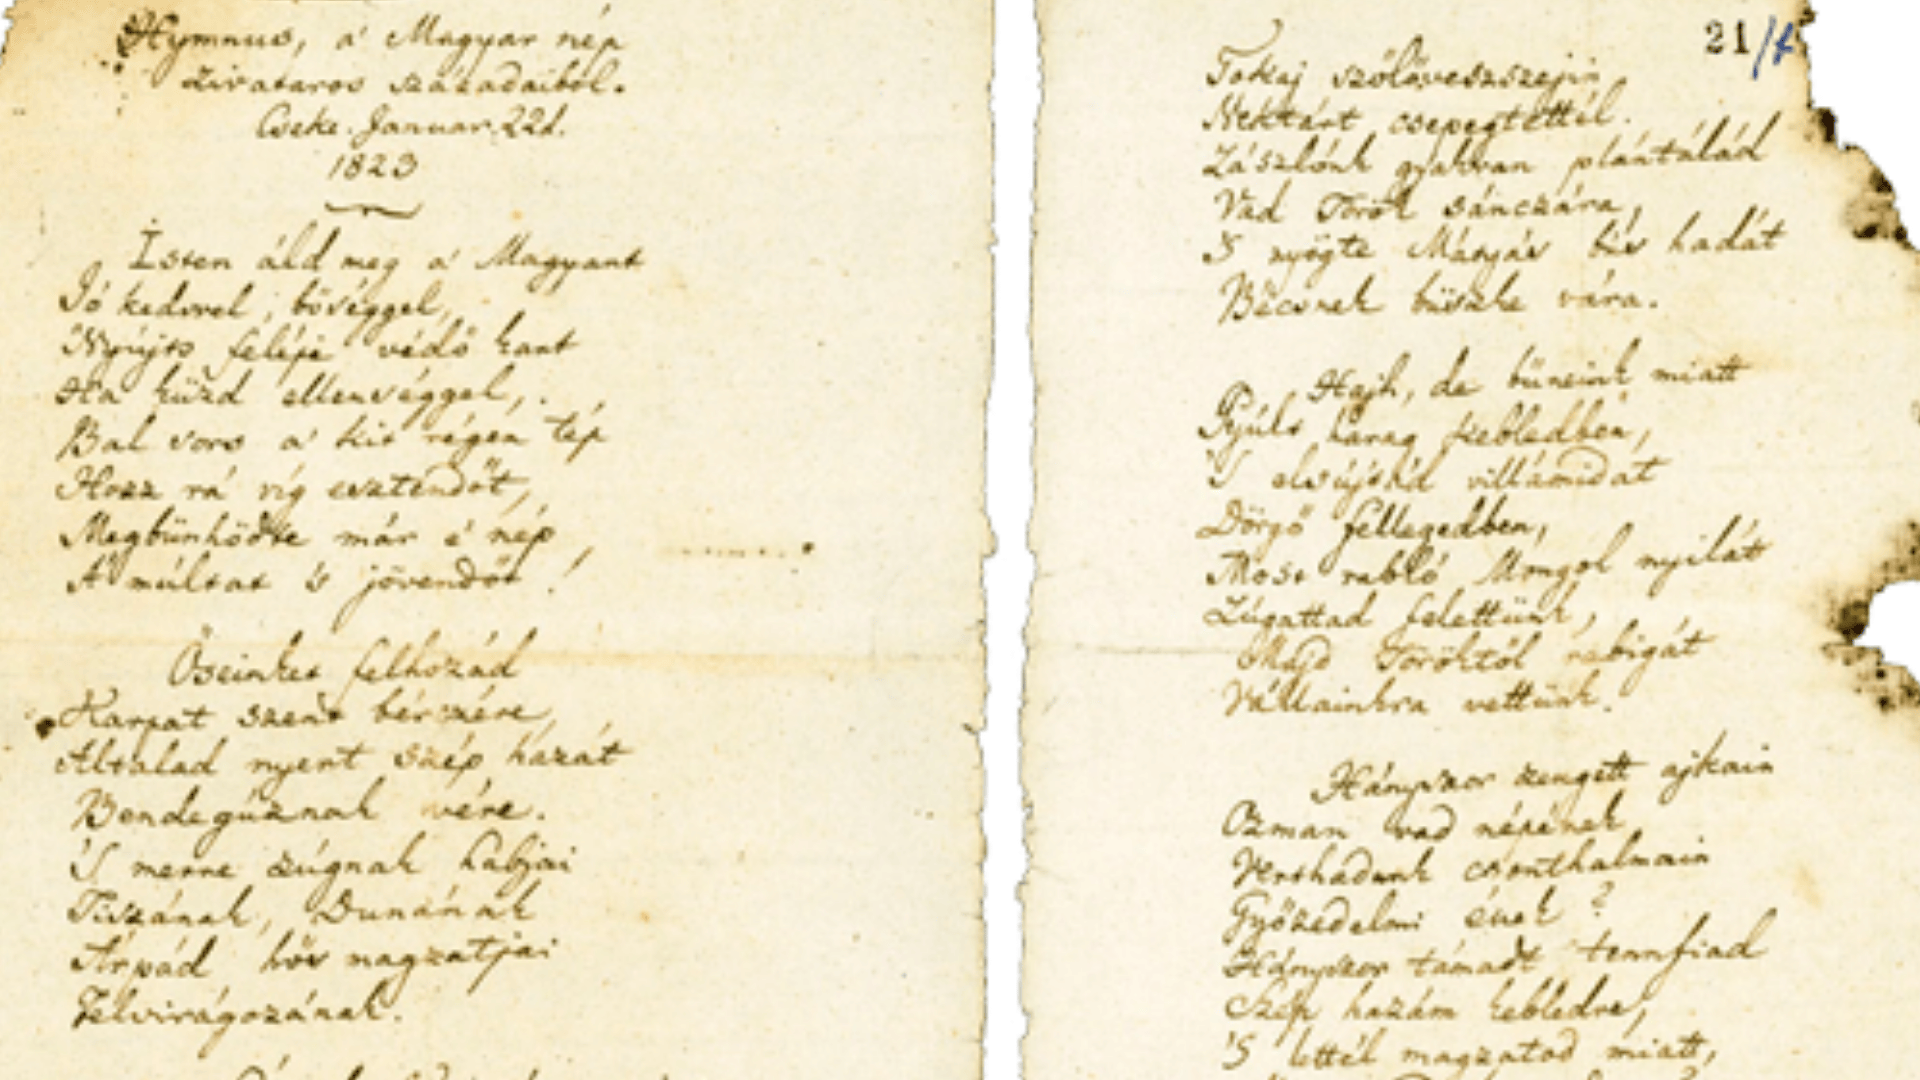 Hymnus, a' Magyar nép
Zivataros századaiból.
Cseke. Januar. 22d.
1823
Isten áld meg a' Magyart
Jó kedvvel, bőséggel,
Nyújts felépe védő kart
Ha küzd ellenséggel,
Bal sors a' kit régen tép
Hozz rá víg esztendőt,
Megbünhödte már é nép
A' múltat 's jövendőt!
Őseinket felhozád
Karpat szent bérczére,
Általad nyert szép hazát
Bendegúznak vére.
'S merre zúgnak habjai
Tiszának, Dunának
Árpád hős magzatjai
Felvirágozának.
21/
Tokaj szőlőveszszejin
Nektárt csepegtettél.
Zászlónk gyakran plántálád
Vad Török sánczára,
'S nyögte Mátyás bús hadát
Bécsnek büszke vára.
Hajh, de bűneink miatt
Gyúlt harag kebledben,
'S elsújtád villámidat
Dörgő fellegedben,
Most rabló Mongol nyilát
Zúgattad felettünk,
Majd Töröktől rabigát
Vállainkra vettünk.
Hányszor zengett ajkain
Ozman vad népének
Vert hadunk csonthalmain
Győzedelmi ének?
Hányszor támadt tennfiad
Szép hazám kebledre,
'S lettél magzatod miatt,